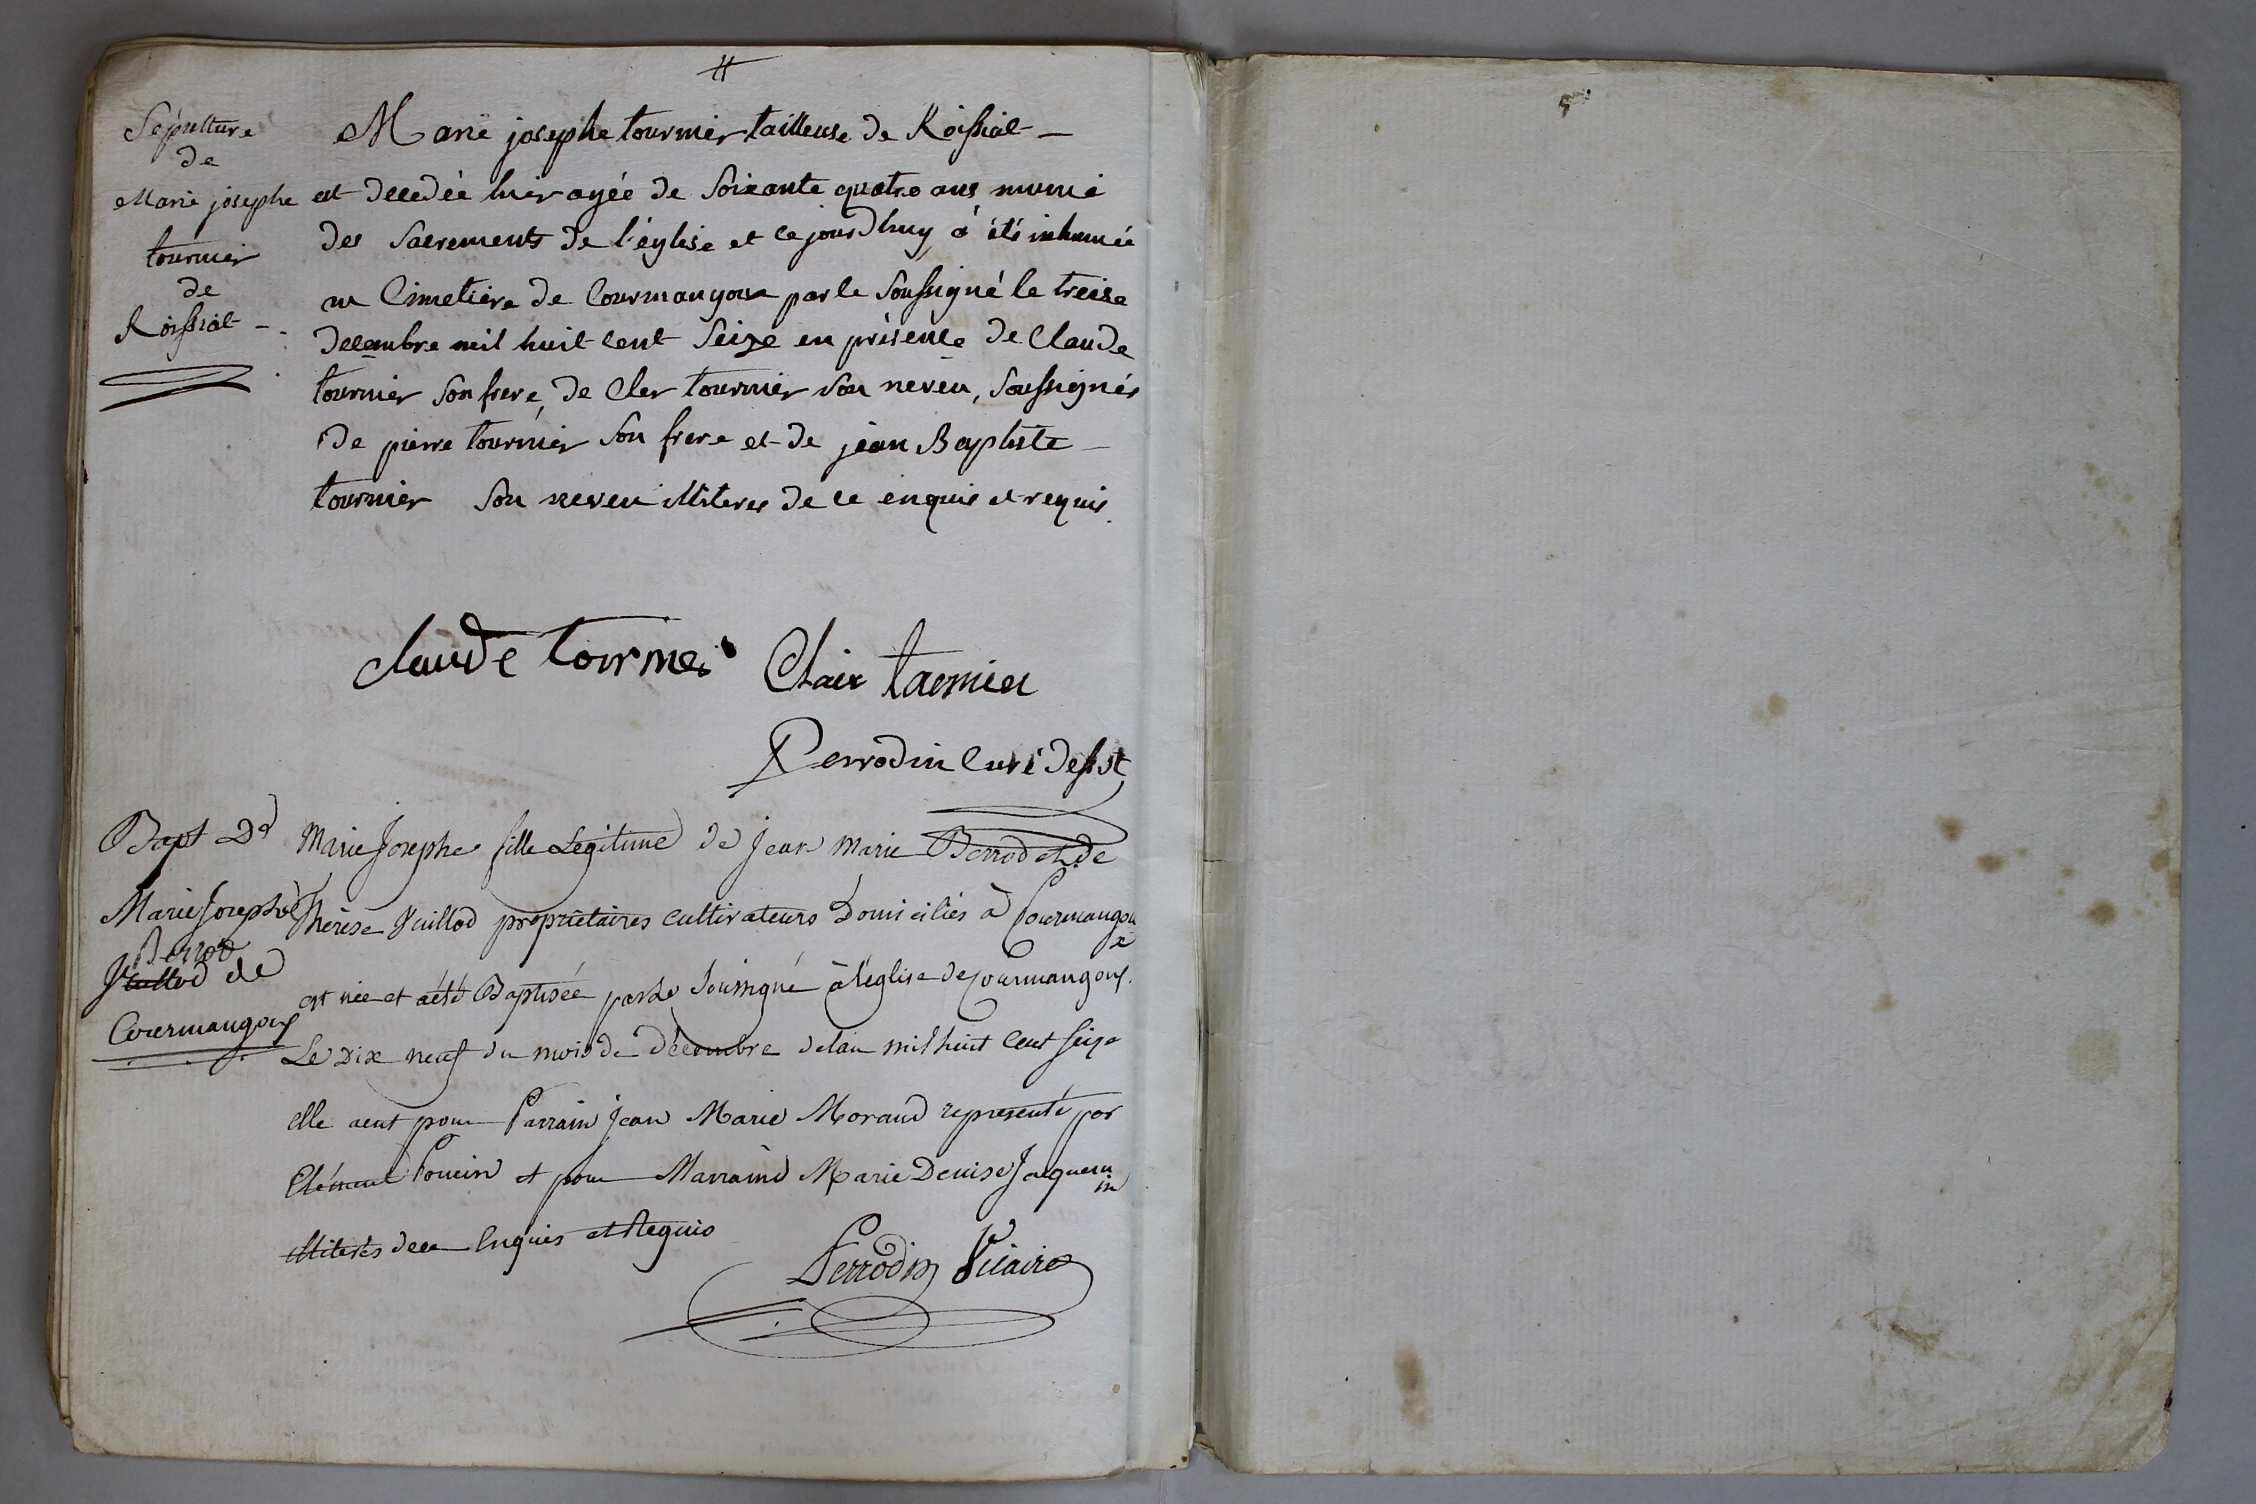 Sépulture
de
Marie josephe
tournier
de
Roissiat
Marie josephe tournier tailleuse de Roissiat
est decedée hier agée de Soixante quatre ans munie
des Sacrements de l'église et cejourdhuy a été inhumée
au Cimetiere de Courmangoux par le Soussigné le treize
decembre mil huit cent Seize en présence de Claude
tournier Son frere, de Cler tournier son neveu, Soussignés
de pierre tournier Son frere et de jean Baptiste
tournier Son neveu illiteres de ce enquis et requis.
claude tournier Clair
Perrodin Curé dessst
Bapt De
Marie Josephe
Berrod
Vuillod de
Courmangoux
Marie Josephe fille Légitime de Jean Marie Berrod et de
Thérèse Vuillod propriétaires cultivateurs Domiciliés à Courmangoux
est née et a été Baptisée par Le Soussigné à l'église de Courmangoux.
Le Dix neuf du mois de décembre de l'an mil huit Cent Seize
elle a eut pour Parrain Jean Marie Morand representé par
Clément Poncin et pour Marraine Marie Denise Jacquemin
illiterés de ce Enquis et Requis
Perrodin Vicaire